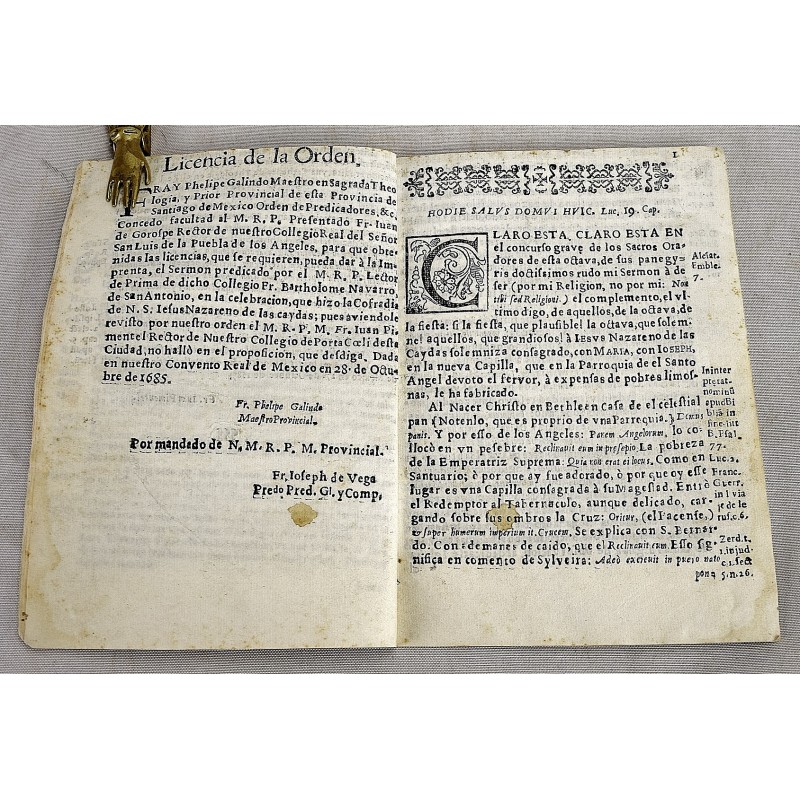 Licencia de la Orden.
FRAY Phelipe Galindo Maestro en Sagrada Theo
logia, y Prior Provincial de esta Provincia de
Santiago de Mexico Orden de Predicadores, &c.
Concedo facultad al M. R. P. Presentado Fr Iuan
de Gorospe Rector de nuestro Collegio Real del Señor
San Luis de la Puebla de los Angeles, para que obte-
nidas las licencias, que se requieren, pueda dar à la Im-
prenta, el Sermon predicado por el M. R. P. Lector
de Prima de dicho Collegio Fr. Bartholome Navarro
de San Antonio, en la celebracion, que hizo la Cofradia
de N. S. Iesus Nazareno de las caydas; pues aviendole
revisto por nuestro orden el M. R. P. M. Fr. Iuan Pi-
mentel Rector de Nuestro Collegio de Porta Cœli desta
Ciudad, no hallò en el proposicion, que desdiga. Dada
en nuestro Convento Real de Mexico en 28. de Octu-
bre de 1685.
Fr. Phelipe Galindo
Maestro Provincial.
Por mandado de N. M. R. P. M. Provincial.
Fr. Ioseph de Vega
Predo Pred. Gl. y Comp.
1
HODIE SALVS DOMVI HVIC. Luc. 19. Cap.
CLARO ESTA, CLARO ESTA EN
el concurso grave de los Sacros Ora-
dores de esta octava, de sus panegy-
ris doctissimos rudo mi Sermon à de
ser (por mi Religion, no por mi: Non
tibi sed Religioni.) el complemento, el vl
timo digo, de aquellos, de la octava, de
la fiesta: si la fiesta, que plausible! la octava, que solem
ne! aquellos, que grandiosos! à IESVS Nazareno de las
Caydas solemniza consagrado, con MARIA, con IOSEPH,
en la nueva Capilla, que en la Parroquia de el Santo
Angel devoto el fervor, à expensas de pobres limos-
nas, le ha fabricado.
Al Nacer Christo en Bethleen casa de el celestial
pan (Notenlo, que es proprio de vna Parrequia.) Domus
panis. Y por esso de los Angeles: Panem Angelorum, lo co-
locò en vn pesebre: Reclinavit eum in presepio La pobreza
de la Emperatriz Suprema: Quia non erat ei locus. Como en
Santuario; ò por que ay fue adorado, ò por que oy esse
lugar es vna Capilla consagrada à su Magestad. Entrò
el Redemptor al Tabernaculo, aunque delicado, car-
gando sobre sus ombros la Cruz: Oritur, (el Pacense,)
& super humerum imperium it. Crucem, Se explica con S. Bernar
do. Con ademanes de caido, que el Reclinavit eum. Esso sig-
nifica en comento de Sylveira: Adeò excreuit in puero nato
pona
Alciat.
Emble.
7.
In inter
pretat-
nominũ
apud Bi
blia in
fine. lit
B. Psal
77.
Luc. 2.
Franc.
Guerr.
in 1 via
je de Ie
rus. c. 6.
Zerd. t.
1. in jud
c. 1. sect
5. n. 26.